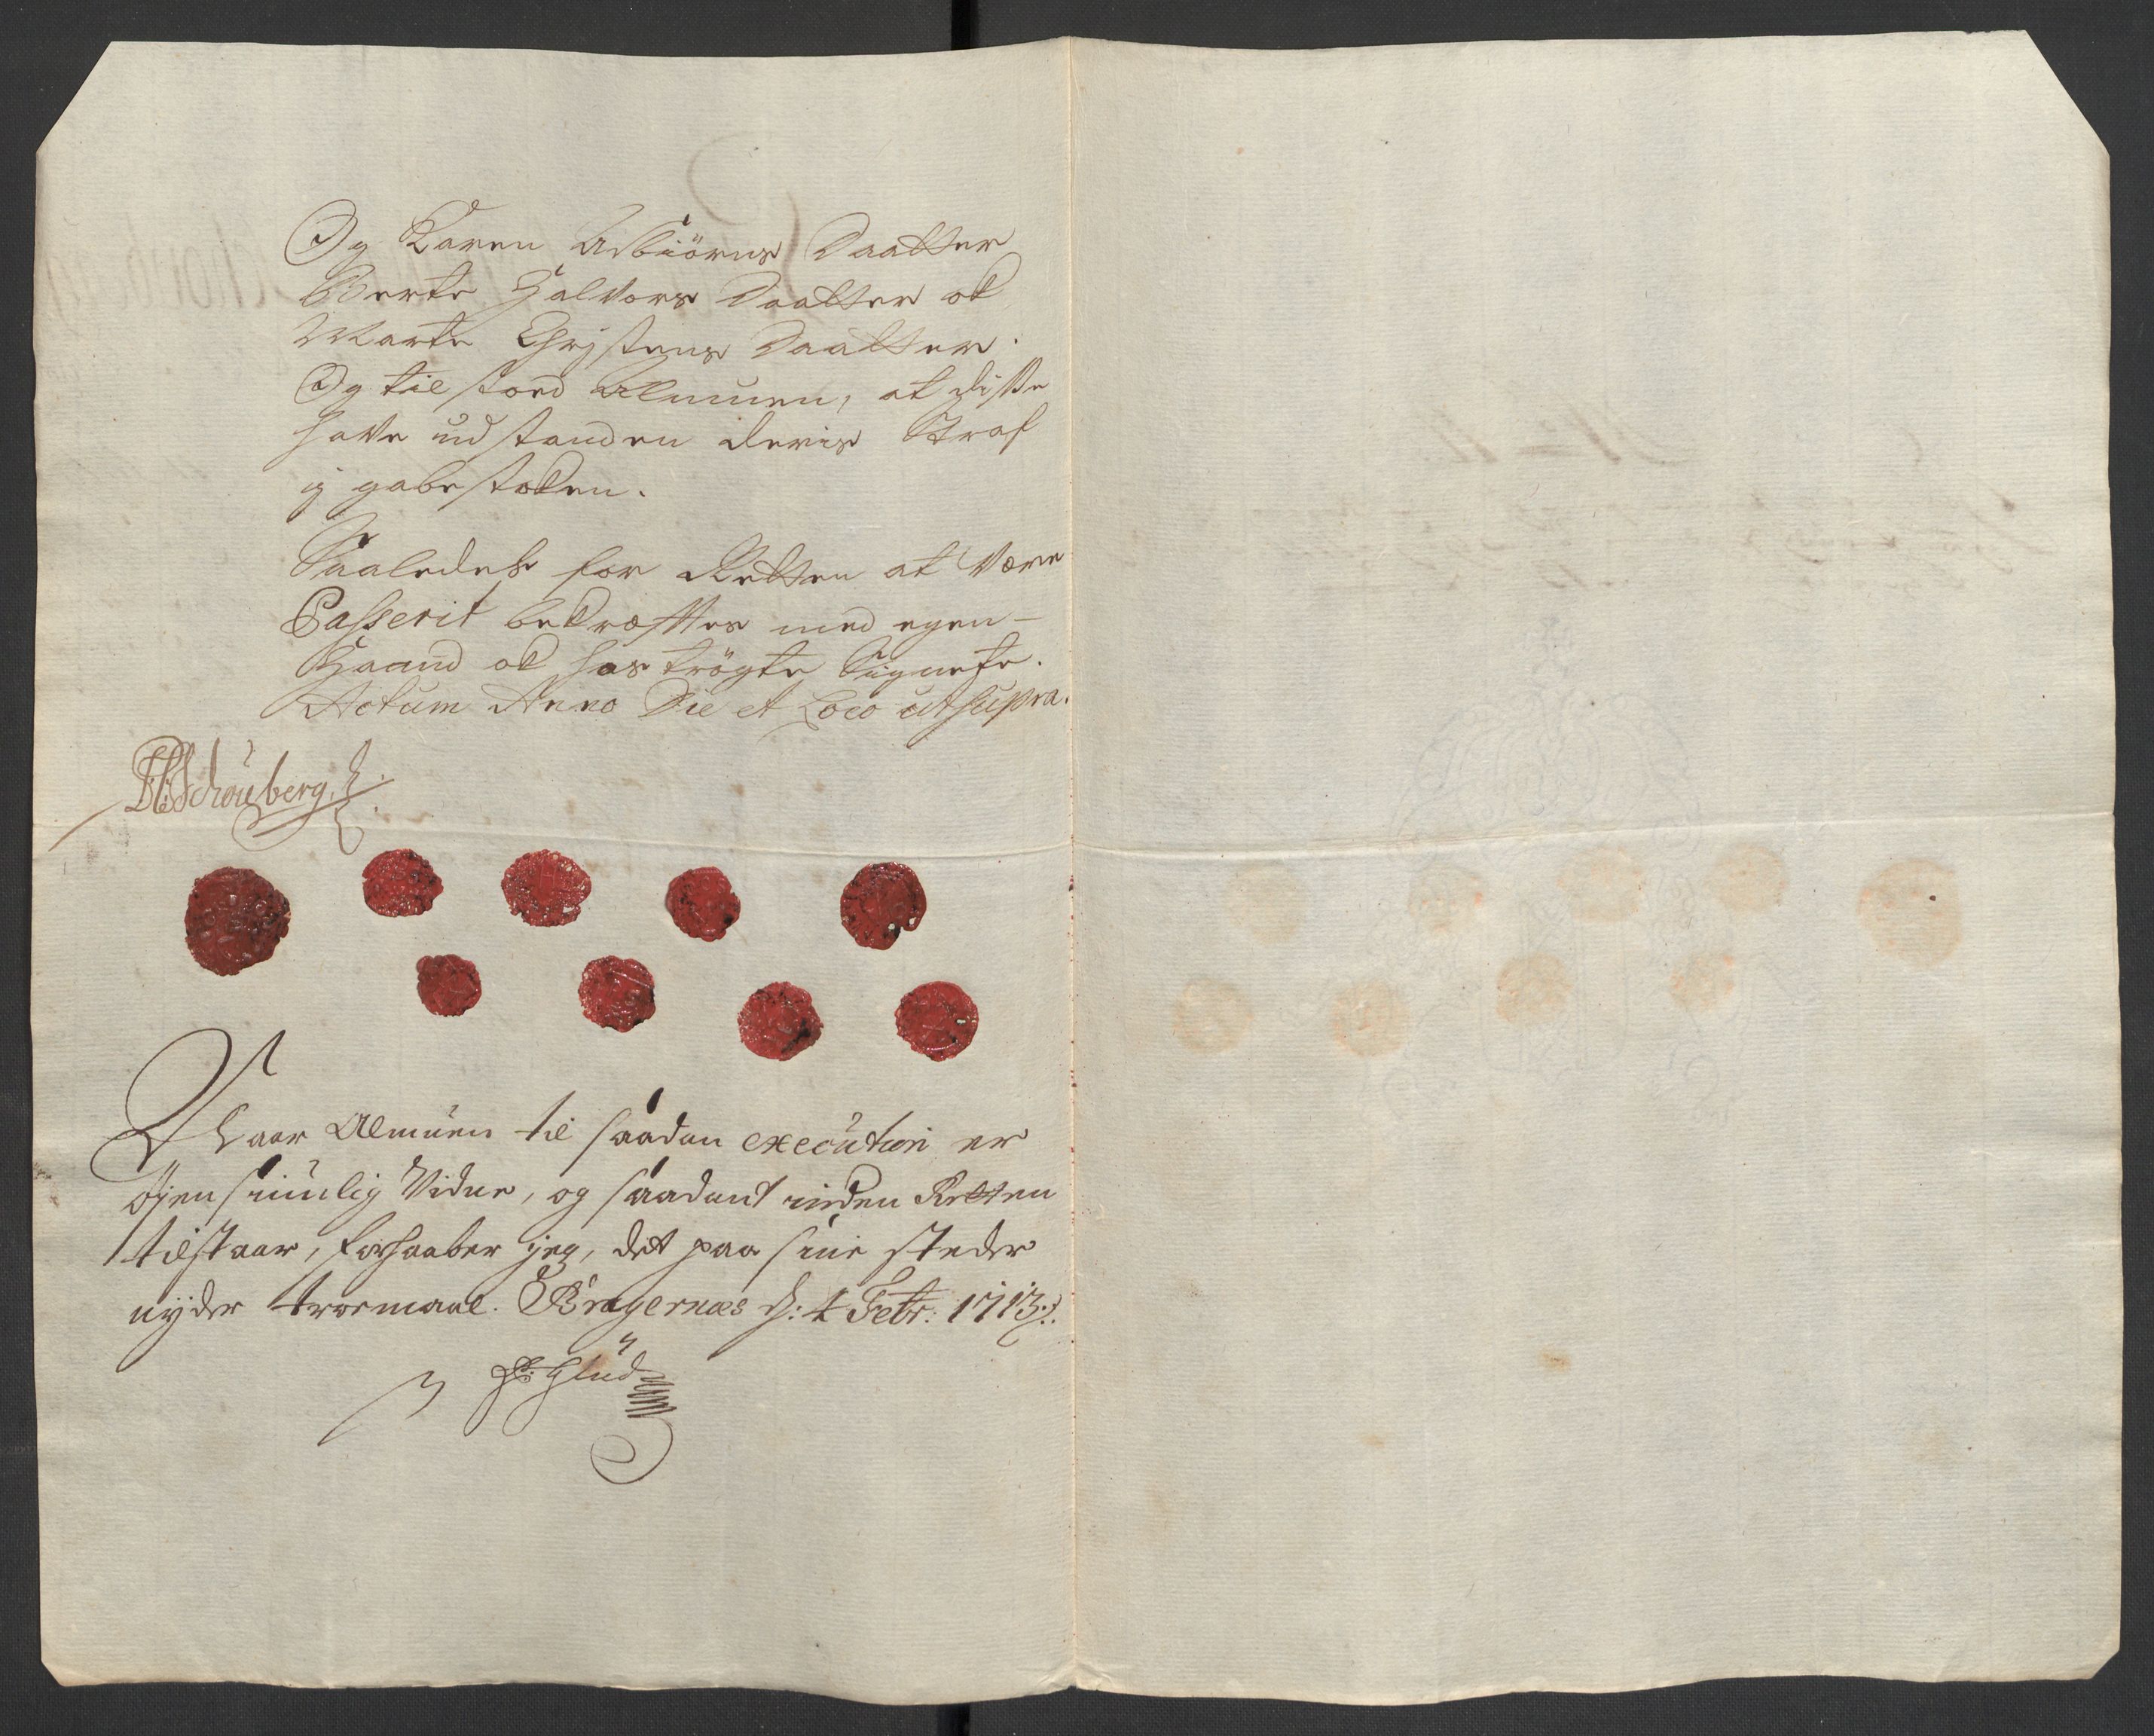 Og Karen Asbiörns Daatter
Berte Halvors Daatter ok
Marte Chrjstens Daatter.
Og til stoed Almuen, at disse
have udstanden deris Straf
ij gabestokken.
Saaledes for Retten at være
Passerit bekræfftes med egen-
Haand ok hos trögte Signete.
Actum Anno Die et Loco ut supra.
Schouberg
Naar Almuen til saadan execution er
öjensiunlig Vidne, og saadant inden Retten
tilstaar, forhaaber jeg, det paa sine steder
nyder troemaal. Bragernæs d: 4 Febr: 1713.
Glud